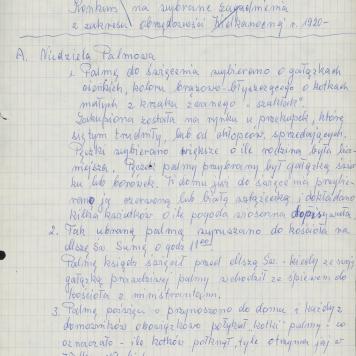 Konkurs na wybrane zagadnienia
z zakresu obrzędowości Wielkanocnej r. 1920-
A. Niedziela Palmowa
1. Palmę do święcenia wybierano o gałązkach
cienkich, koloru brązowo-błyszczącego o kotkach
małych z krzaku zwanego "szakłak".
Zakupiona została na rynku u przekupek, które
się tym trudniły, lub od chłopców, sprzedających.
Pęczki wybierano większe o ile rodzina była
Pęczek palmy przybrany był gałązką
ku lub borówek. W domu już do święcenia
no ją czerwoną lub białą wstążeczką i dokładano
kilka kwiatków o ile pogoda wiosenna dopisywała
2. Tak ubraną palmę wynoszono do kościoła na
Mszę Św. Sumę o godz 11⁰⁰
Palmy ksiądz święcił przed Mszą Św. - kiedy ze swoją
gałązką prawdziwej palmy wchodził ze śpiewem do
kościoła z ministrantami.
3. Palmę poświęc. przynoszono do domu i każdy z
domowników obowiązkowo połykał "kotki" palmy - co
oznaczało - ile kotków połknął, tyle otrzyma jaj w